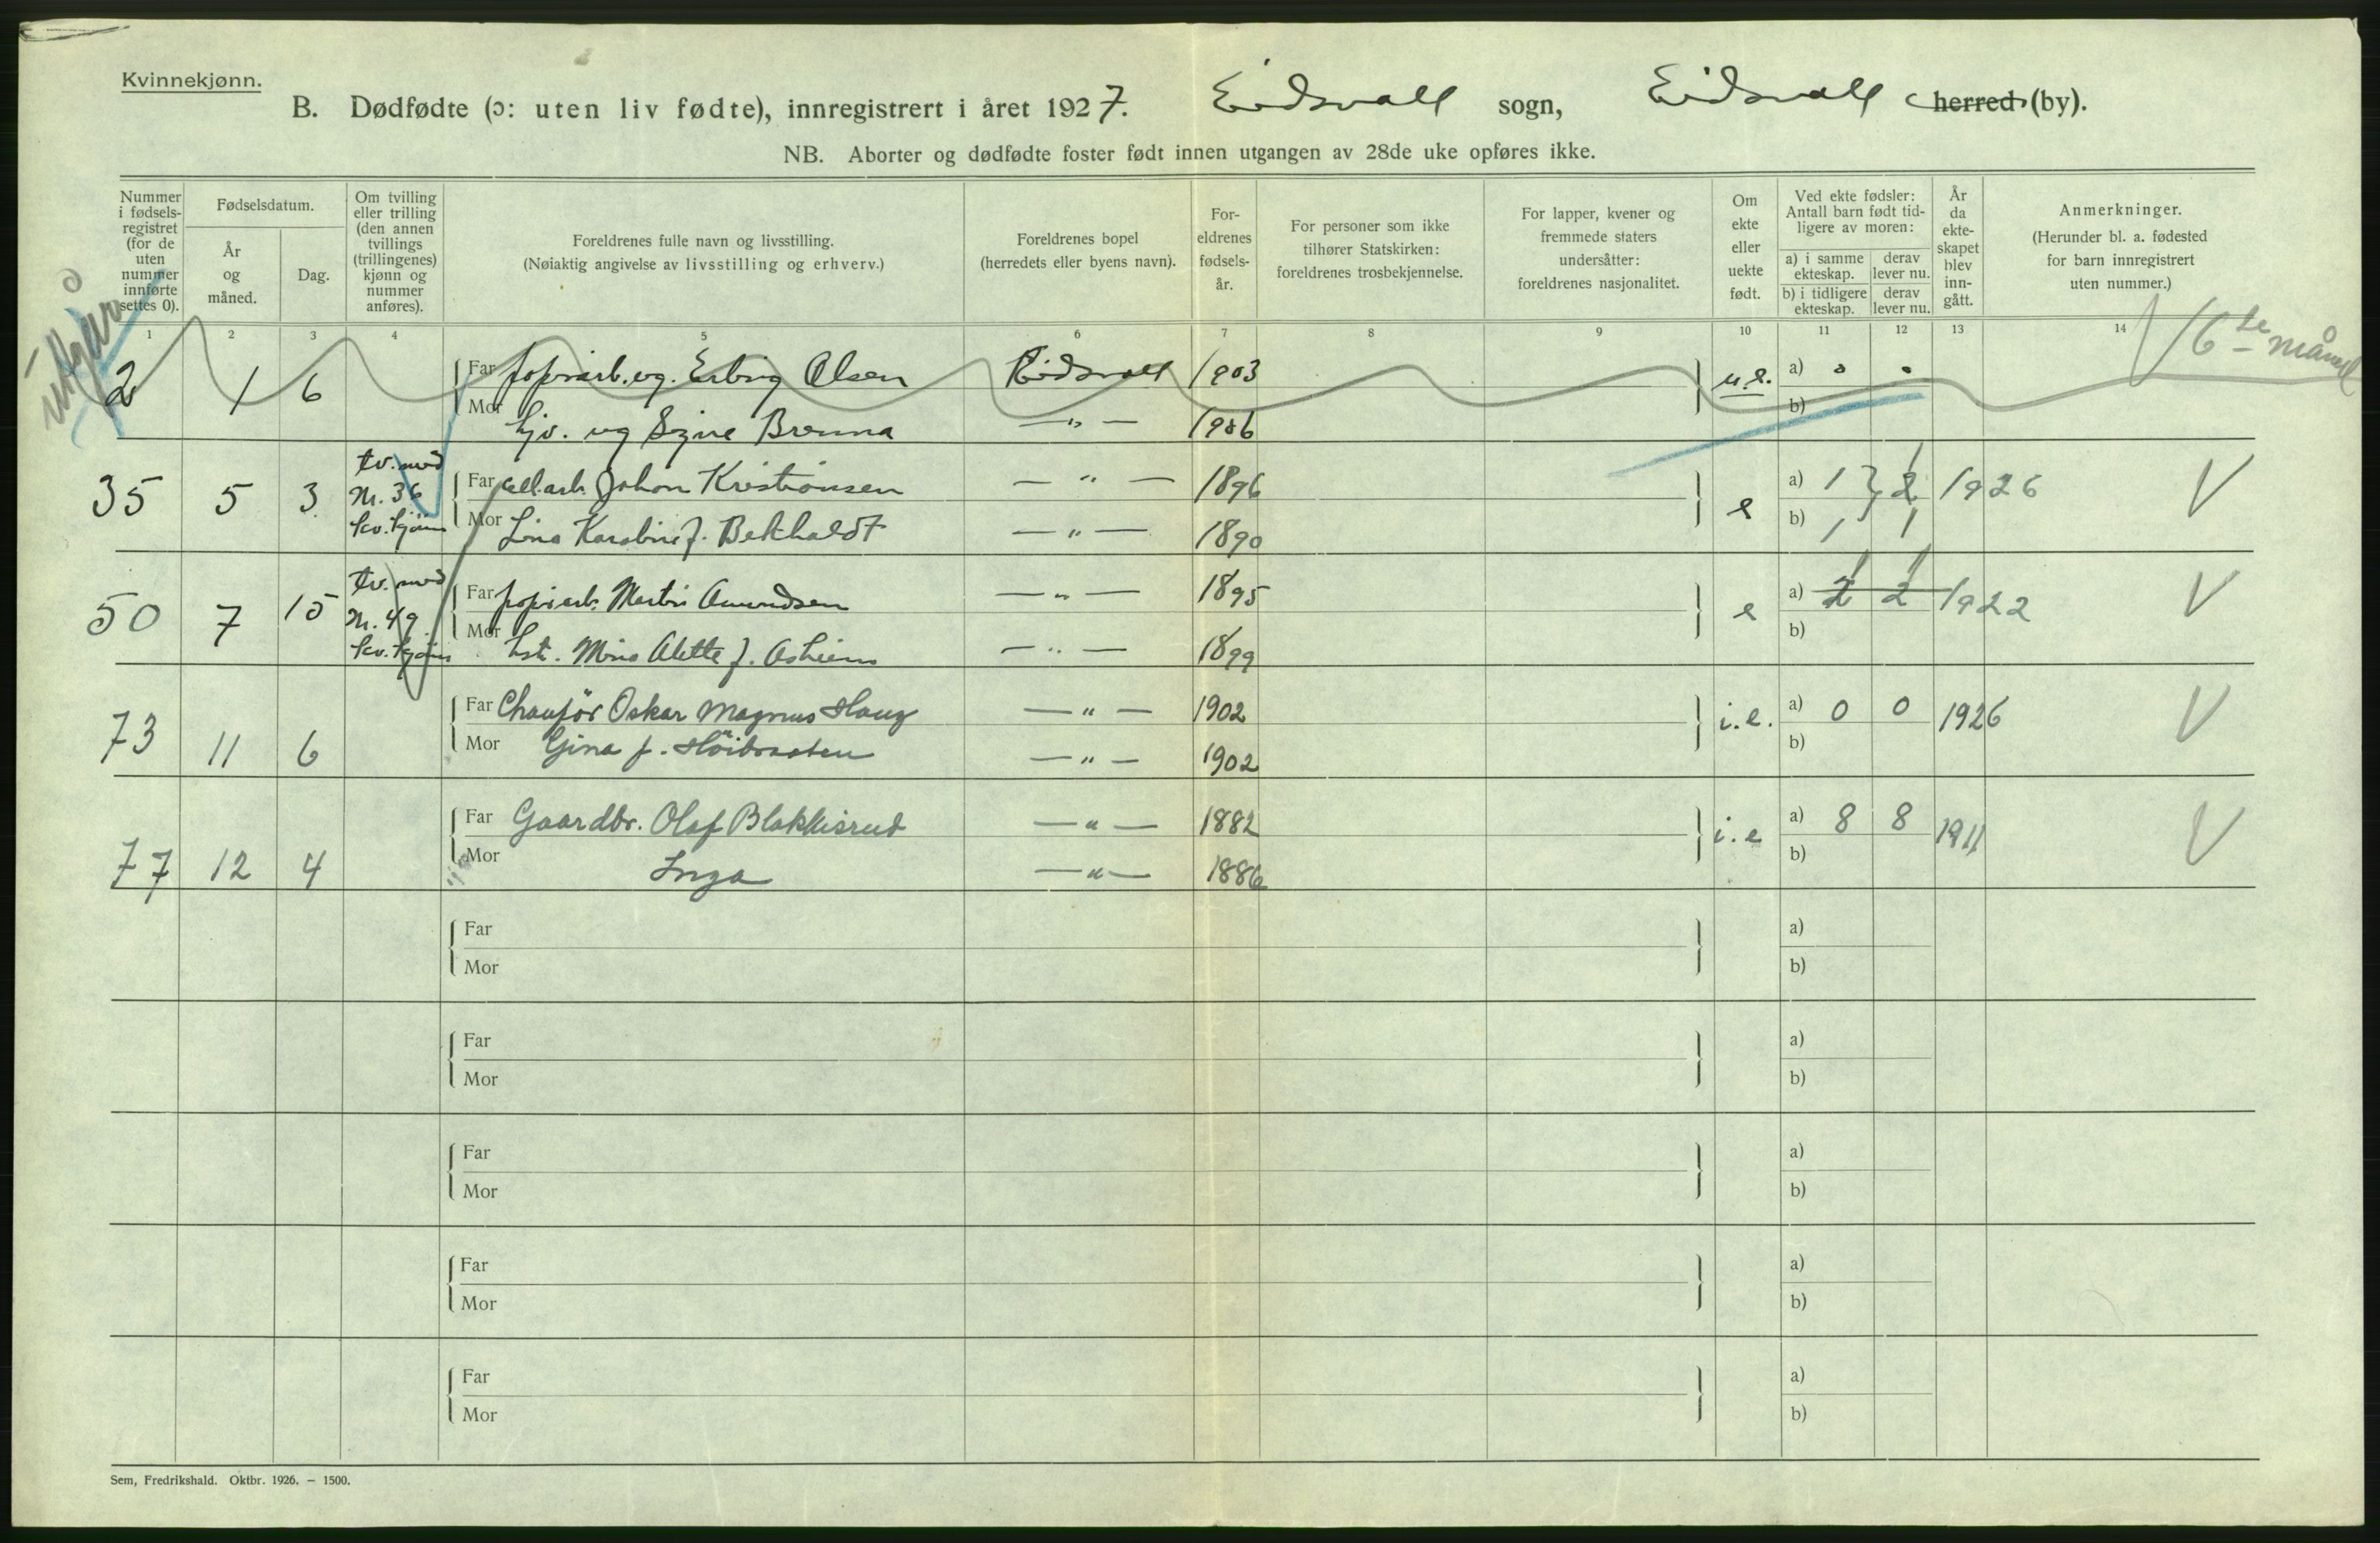 Kvinnekjønn.
B. Dødfødte (ɔ: uten liv fødte), innregistrert i året 1927. Eidsvoll sogn, Eidsvoll herred (by).
NB. Aborter og dødfødte foster født innen utgangen av 28de uke opføres ikke.
Nummer i fødsels-registret (for de uten nummer innførte settes 0).
Fødselsdatum.
År og måned.
Dag.
Om tvilling eller trilling (den annen tvillings (trillingenes) kjønn og nummer anføres).
Foreldrenes fulle navn og livsstilling.
(Nøiaktig angivelse av livsstilling og erhverv.)
Foreldrenes bopel
(herredets eller byens navn).
For-eldrenes fødsels-år.
For personer som ikke tilhører Statskirken: foreldrenes trosbekjennelse.
For lapper, kvener og fremmede staters undersåtter: foreldrenes nasjonalitet.
Om ekte eller uekte født.
Ved ekte fødsler: Antall barn født tid-ligere av moren:
a) i samme ekteskap. derav lever nu.
b) i tidligere ekteskap. derav lever nu.
År da ekte-skapet blev inn-gått.
Anmerkninger.
(Herunder bl. a. fødested for barn innregistrert uten nummer.)
1 2 3 4 5 6 7 8 9 10 11 12 13 14
utgår
2 1 6 Far papirarb. ug. Erling Olsen Eidsvoll 1903 u.e. a) 0 0 6te måned
Mor tj. ug Signe Brenna — " — 1906 b)
35 5 3 tv. med Nr. 36 kv. kjønn Far cell.arb. Johan Kristiansen — " — 1896 e a) 1 2 1926 V
Mor Lina Karoline f. — " — 1890 b) 1 1
50 7 15 tv. med Nr. 49 kv. kjønn Far papirarb. Martin Amundsen — " — 1895 e a) 2 2 1922 V
Mor hst. Mina Alette f. — " — 1899 b)
73 11 6 Far Chauför Oskar Magnus Haug — " — 1902 i.e. a) 0 0 1926 V
Mor Gina f. Höibraaten — " — 1902 b)
77 12 4 Far Gaardbr. Olaf Blakkisrud — " — 1882 i.e a) 8 8 1911 V
Mor Inga — " — 1886 b)
Far a)
Mor b)
Far a)
Mor b)
Far a)
Mor b)
Far a)
Mor b)
Far a)
Mor b)
Sem, Fredrikshald. Oktbr. 1926. — 1500.